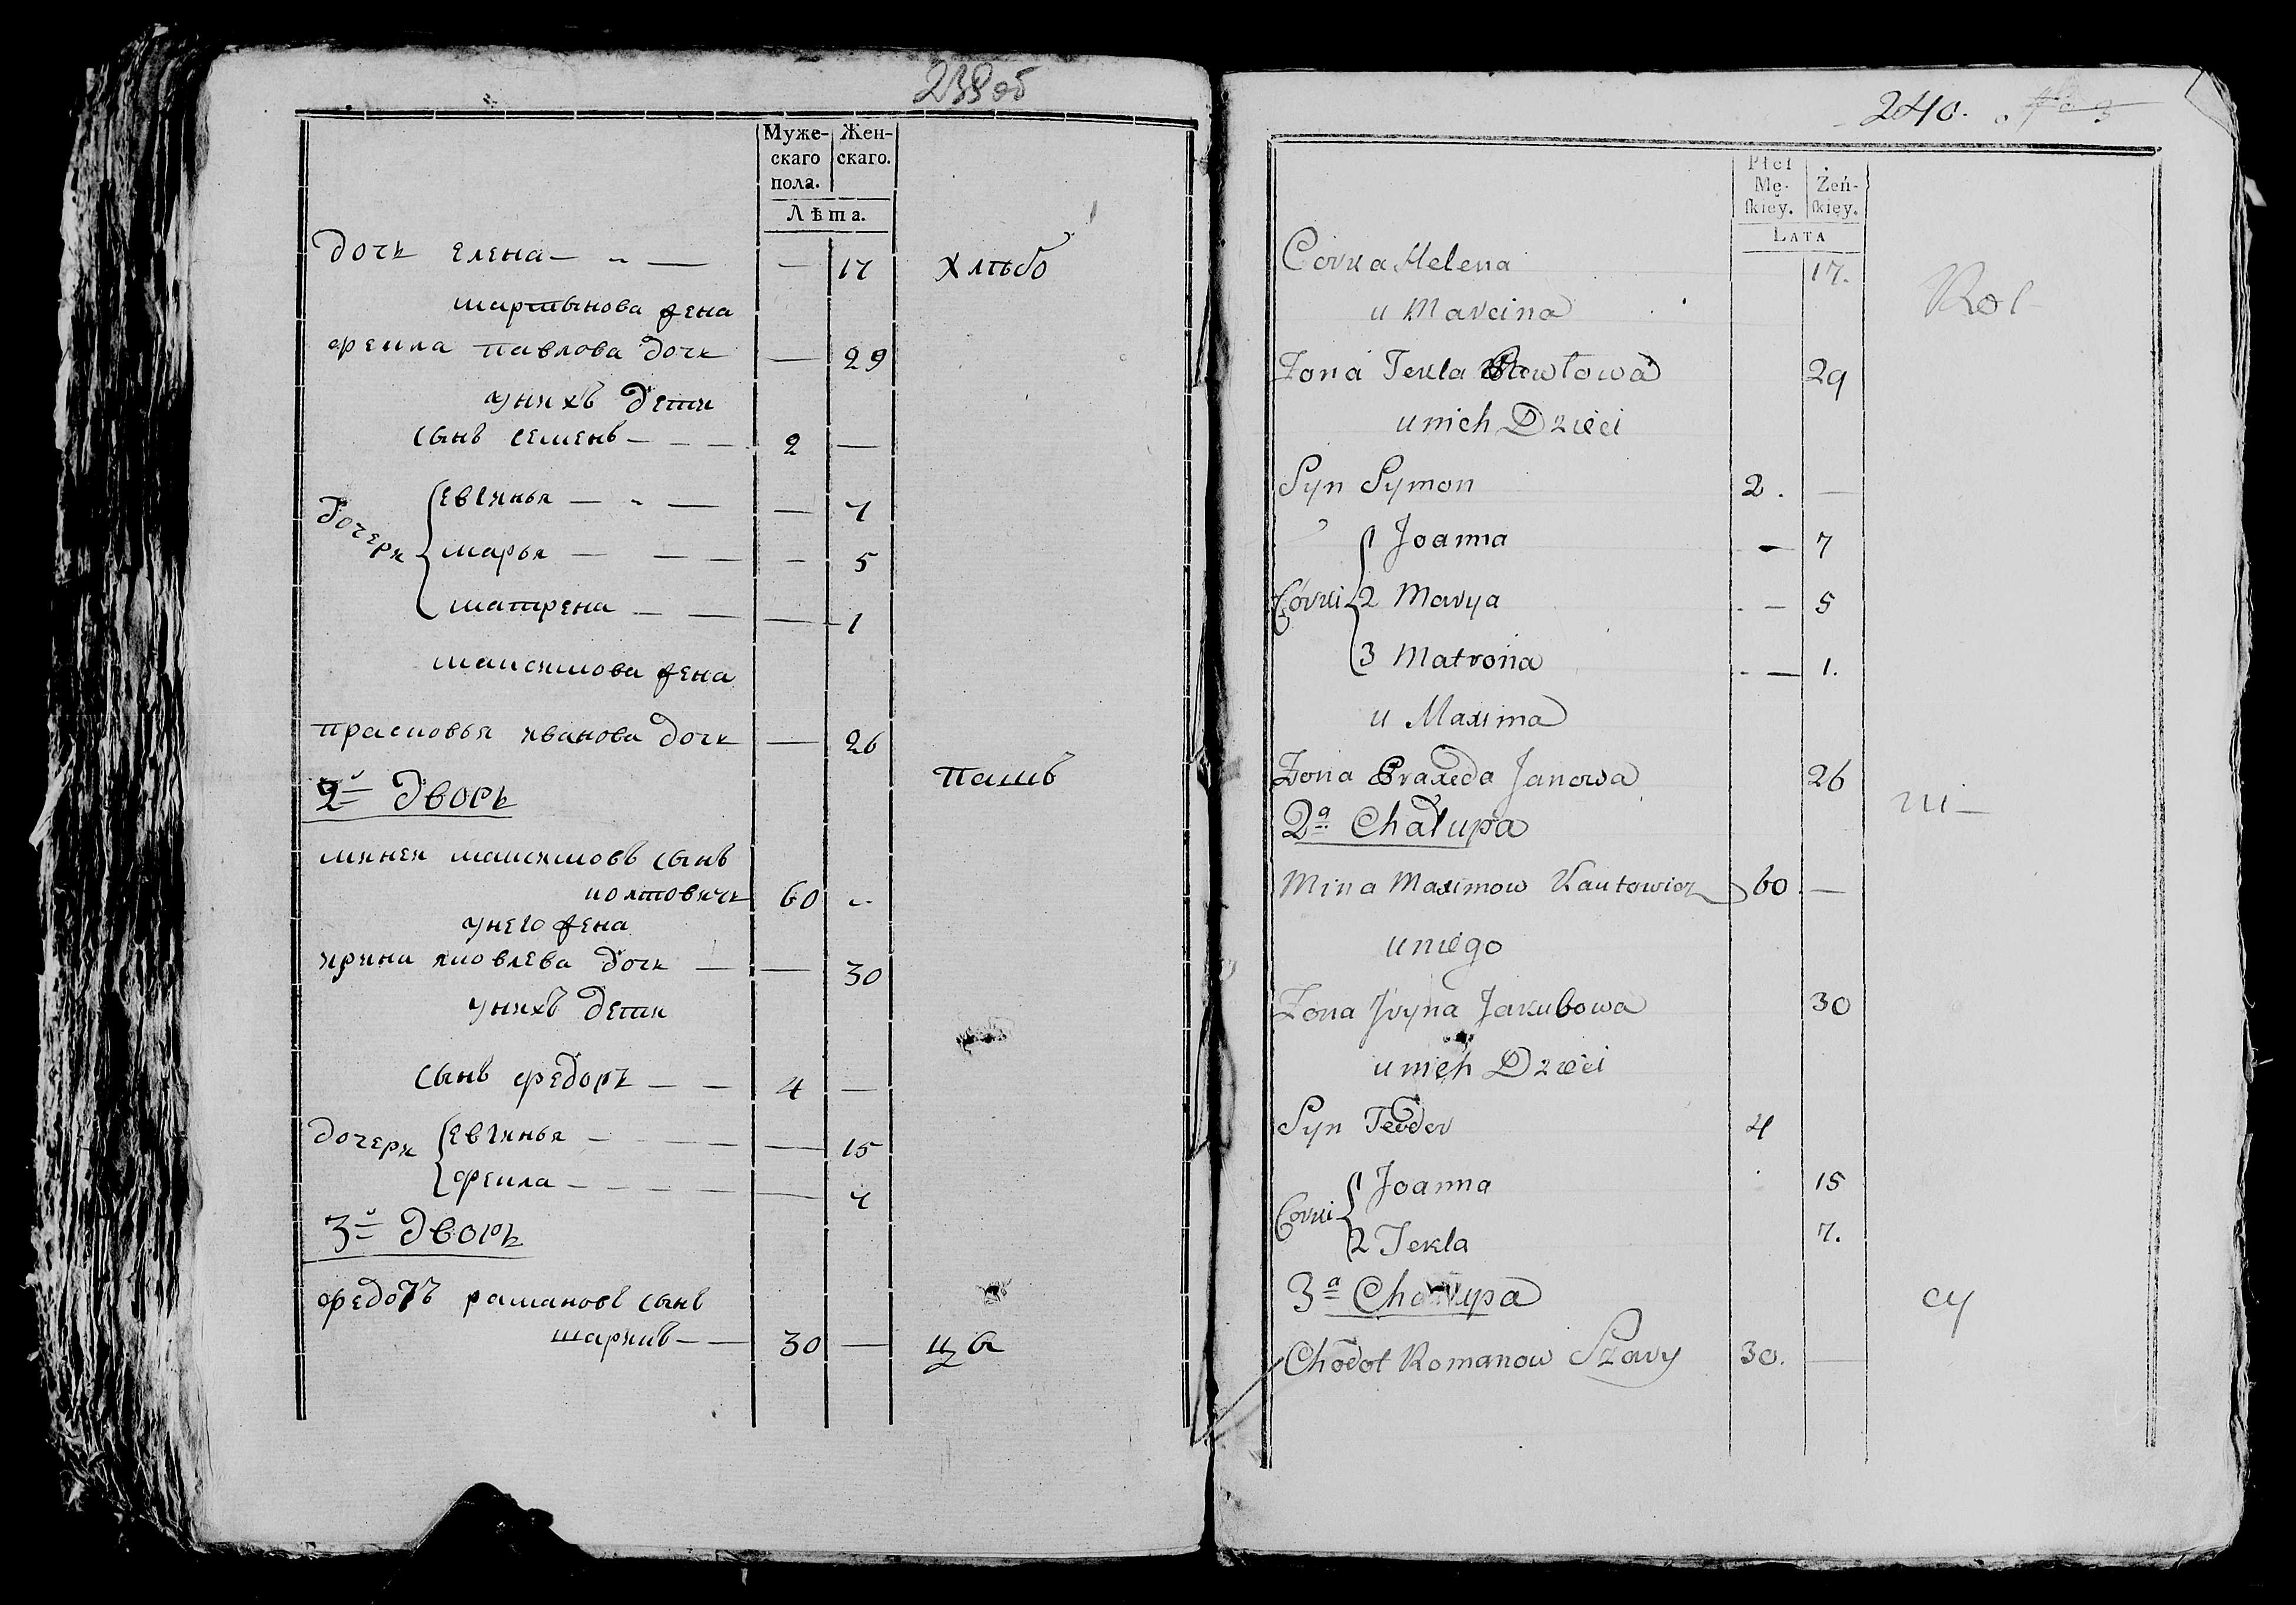 239об
Муже- Жен-
скаго скаго.
пола.
Лѣта.
дочь елена — 17 хлѣбо
мартынова жена
фекла павлова дочь — 29
у нихъ дети
сынъ семенъ — 2 —
дочери евгинья — — 7
марья — — 5
матрена — — 1
максимова жена
прасковья иванова дочь — 26
пашъ
2й дворъ
миней максимовъ сынъ
колтовичь 60 —
у него жена
ирина яковлева дочь — — 30
у нихъ дети
сынъ федоръ — — 4 —
дочери евгинья — — 15
фекла — — 7
3й дворъ
федотъ рамановъ сынъ
шаркивъ — — 30 — цы
240.
Płci
Mę- Żeń-
ſkiey. ſkiey.
LATA
Corka Helena 17.
Rol-
u Marcina
Żona Tekla Pawłowa 29
u nich Dzieci
Syn Symon 2. —
Córki 1 Joanna — 7
2 Marya — 5
3 Matrona — 1.
u Maxima
Żona Praxeda Janowa 26
ni—
2a Chałupa
Mina Maximow Kautowicz 60 —
u niego
Żona Jryna Jakubowa 30
u nich Dzieci
Syn Teodor 4
Corki 1 Joanna 15
2 Tekla 7.
3a Chałupa
cy
Chodot Romanow Szary 30. —